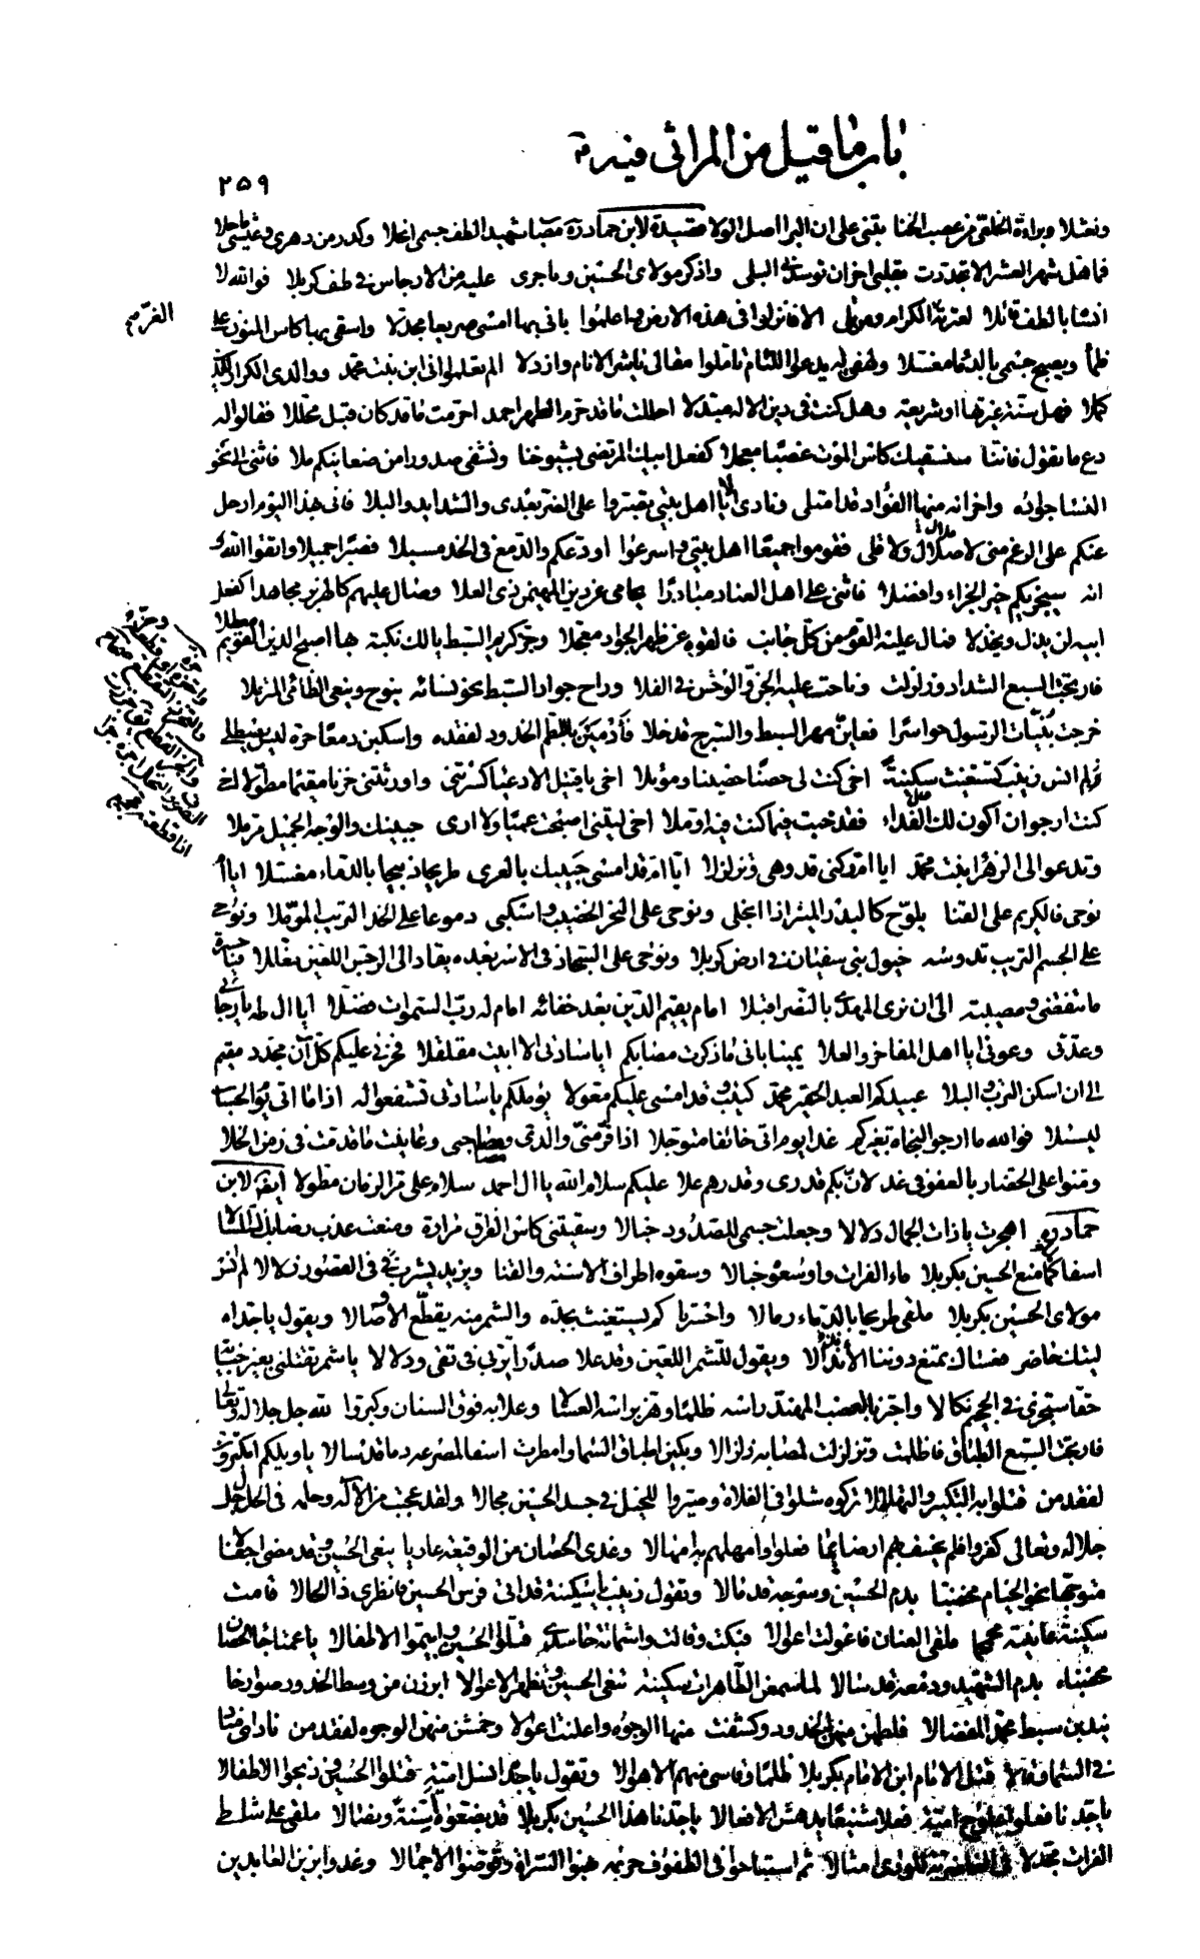 باب ما قيل من المراثي فيه
٢٥٩
ونعثلا وبراءة الخلقي من عصب الخنا بتنى على ان البرا اصل الولا قصيدة لابن حماد ره مصاب شهيد الطف جسمى انحلا وكدر من دهرى وعيشى ما حلا
فما هل شهر العشر الا تجددت بقلبى احزان توسدنى البلى واذكر مولاى الحسين وما جرى عليه من الارجاس في طف كربلا فوالله لا
انساه بالطف قائلا لعترته الكرام ومن تلى الا فانزلوا في هذه الارض واعلموا بانى بها امسى صريعا مجدلا واسقى بها كاس المنون على
ظمأ ويصبح جسمى بالدماء مغسلا ولهفى له يدعو اللئام تاملوا مقالى يا شر الانام وارذلا الم تعلموا انى ابن بنت محمد ووالدى الكرار للدين
كملا فهل سنة غيرتها او شريعة وهل كنت في دين الاله مبدلا احللت ما قد حرم الطهر احمد احرمت ما قد كان قبل محللا فقالوا له
دع ما تقول فاننا سنسقيك كاس الموت غصبا معجلا كفعل ابيك المرتضى بشيوخنا ونشفى صدورا من ضغاينكم ملا فاثنى الى نحو
النساء جواده واحزانه منها الفؤاد قد امتلى ونادى الا يا اهل بيتى تصبروا على الضر بعدى والشدايد والبلا فانى بهذا اليوم ارحل
عنكم على الرغم منى لا ملال ولا قلى فقوموا جميعا اهل بيتى واسرعوا اودعكم والدمع في الخد مسبلا فصبرا جميلا واتقوا الله
انه سيجزيكم خير الجزاء وافضلا فاثنى على اهل العناد مبادرا يحامى عن دين المهيمن ذى العلا وصال عليهم كالهزبر مجاهدا كفعل
ابيه لن يذل ويخذلا فمال عليه القوم من كل جانب فالقوه عن ظهر الجواد معجلا وخر كريم السبط يا لك نكبة بها اصبح الدين القويم معطلا
فارتجت السبع الشداد وزلزلت وناحت عليه الجن والوحش في الفلا وراح جواد السبط نحو نسائه ينوح وينعى الظامى المزملا
خرجن بنيات الرسول حواسرا فعاين مهر السبط والسرج قد خلا فأدمين باللطم الخدود لفقده واسكبن دمعا حره ليس يصطلى
ولم انس زينب تستغيث سكينة اخى كنت لى حصنا حصينا وموئلا اخى يا قتيل الادعياء كسرتنى واورثتنى حزنا مقيما مطولا اخى
كنت ارجو ان اكون لك الفداء فقد خبت فيما كنت فيه اوملا اخى ليتنى اصبحت عميا ولا ارى جبينك والوجه الجميل مرملا
وتدعو الى الزهراء بنت محمد ايا ام ركنى قد وهى وتزلزلا ايا ام قد امسى حبيبك بالعرى طريحا ذبيحا بالدماء مغسلا ايا ام
نوحى فالكريم على القنا يلوح كالبدر المنير اذا انجلى ونوحى على النحر الخضيب واسكبى دموعا على الخد التريب المرملا ونوحى
على الجسم التريب تدوسه خيول بنى سفيان في ارض كربلا ونوحى على السجاد في الاسر بعده يقاد الى الرجس اللعين مغللا فيا حسرة
ما تنقضى ومصيبة الى ان نرى المهدى بالنصر اقبلا امام يقيم الدين بعد خفائه امام له رب السموات فضلا ايا ال طه يا رجائى
وعدتى وعونى ايا اهل المفاخر والعلا يمينا بانى ما ذكرت مصابكم ايا سادتى الا ابيت مقلقلا فحزنى عليكم كل آن مجدد مقيم
الى ان اسكن الترب والبلا عبيدكم العبد الحقير محمد كئيب وقد امسى عليكم معولا يؤملكم يا سادتى تشفعوا له اذا ما اتى يوم الحساب
ليسئلا فوالله ما ارجو النجاة بغيركم غدا يوم اتى خائفا متوجلا اذا فر منى والدى ومصاحبى وعاينت ما قدمت في زمن الخلا
ومنوا على الحضار بالعفو في غد لان بكم قدرى وقدرهم علا عليكم سلام الله يا ال احمد سلام على مر الزمان مطولا ايضا لابن
حماد ره اهجرت يا ذات الجمال دلالا وجعلت جسمى للصدود خيالا وسقيتنى كاس الفراق مرارة ومنعت عذب رضابك السلسالا
اسفا كما منع الحسين بكربلا ماء الفرات واوسعوه خبالا وسقوه اطراف الاسنة والقنا ويزيد يشرب في القصور زلالا لم انس
مولاى الحسين بكربلا ملقى طريحا بالدماء رمالا واحسرتا كم يستغيث بجده والشمر منه يقطع الاوصالا ويقول يا جداه
ليتك حاضر فعساك تمنع دوننا الأنذالا ويقول للشمر اللعين وقد علا صدرا تربى في تقى ودلالا يا شمر تقتلنى بغير جناية
حقا ستجزى في الجحيم نكالا واجتز بالعضب المهند راسه ظلما وهز براسه العسالا وعلا به فوق السنان وكبروا لله جل جلاله وتعالى
فارتجت السبع الطباق فاظلمت وتزلزلت لمصابه زلزالا وبكين اطباق السماء وامطرت اسفا لمصرعه دما قد سالا يا ويلكم اتكبرون
لفقد من قتلوا به التكبير والتهليلا تركوه شلوا في الفلاة وصيروا للخيل في جسد الحسين مجالا ولقد عجبت من الآله وحلمه في الحال جل
جلاله وتعالى كفروا فلم يخسف بهم ارضا بما فعلوا وامهلهم به امهالا وغدى الحصان من الوقيعة عاريا ينعى الحسين وقد مضى اجفالا
متوجها نحو الخيام مخضبا بدم الحسين وسرجه قد مالا وتقول زينب يا سكينة قد اتى فرس الحسين فانظرى ذا الحالا قامت
سكينة عاينته محمحما ملقى العنان فاعولت اعوالا فبكت وقالت واشماتة حاسدى قتلوا الحسين وايتموا الاطفالا يا عمتا جاء الحصان
مخضبا بدم الشهيد ودمعه قد سالا لما سمعن الطاهرات سكينة تنعى الحسين وتظهر الاعوالا ابرزن من وسط الخدود صوارخا
يندبن سبط محمد المفضالا فلطمن منهن الخدود وكشفت منها الوجوه واعلنت اعوالا وخمشن منهن الوجوه لفقد من نادى مناد
في السماء وقالا قتل الامام ابن الامام بكربلا ظلما وقاسى منهم الاهوالا وتقول يا جدا نسل امية قتلوا الحسين وذبحوا الاطفالا
يا جدنا فعلوا علوج امية فعلا شنيعا يدهش الافعالا يا جدنا هذا الحسين بكربلا قد بضعوه اسنة ونصالا ملقى على شاطى
الفرات مجدلا في الغاضرية للورى امثالا ثم استباحوا في الطفوف حريمه نهبوا السراة وقوضوا الاحمالا وغدوا بزين العابدين